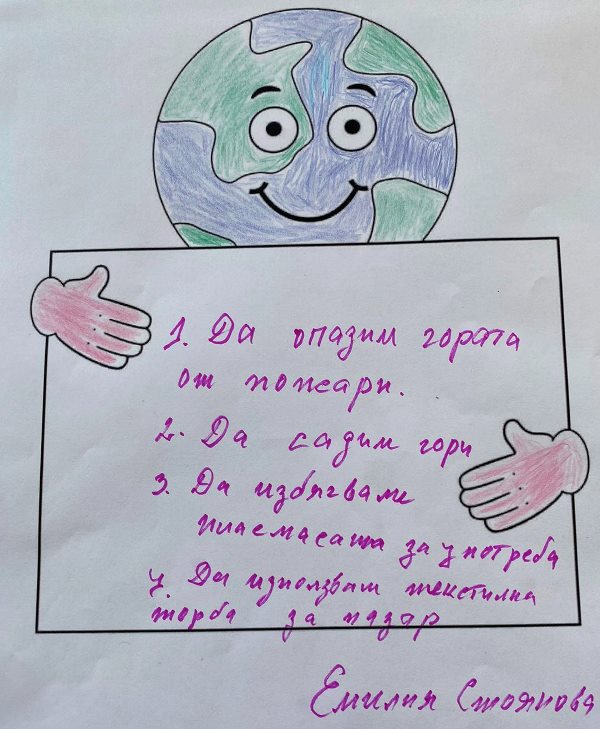 1. Да опазим гората
от пожари.
2. Да садим гори
3. Да избягваме
пласмасата за употреба
4. Да използвам текстилна
торба за пазар
Емилия Стоянова